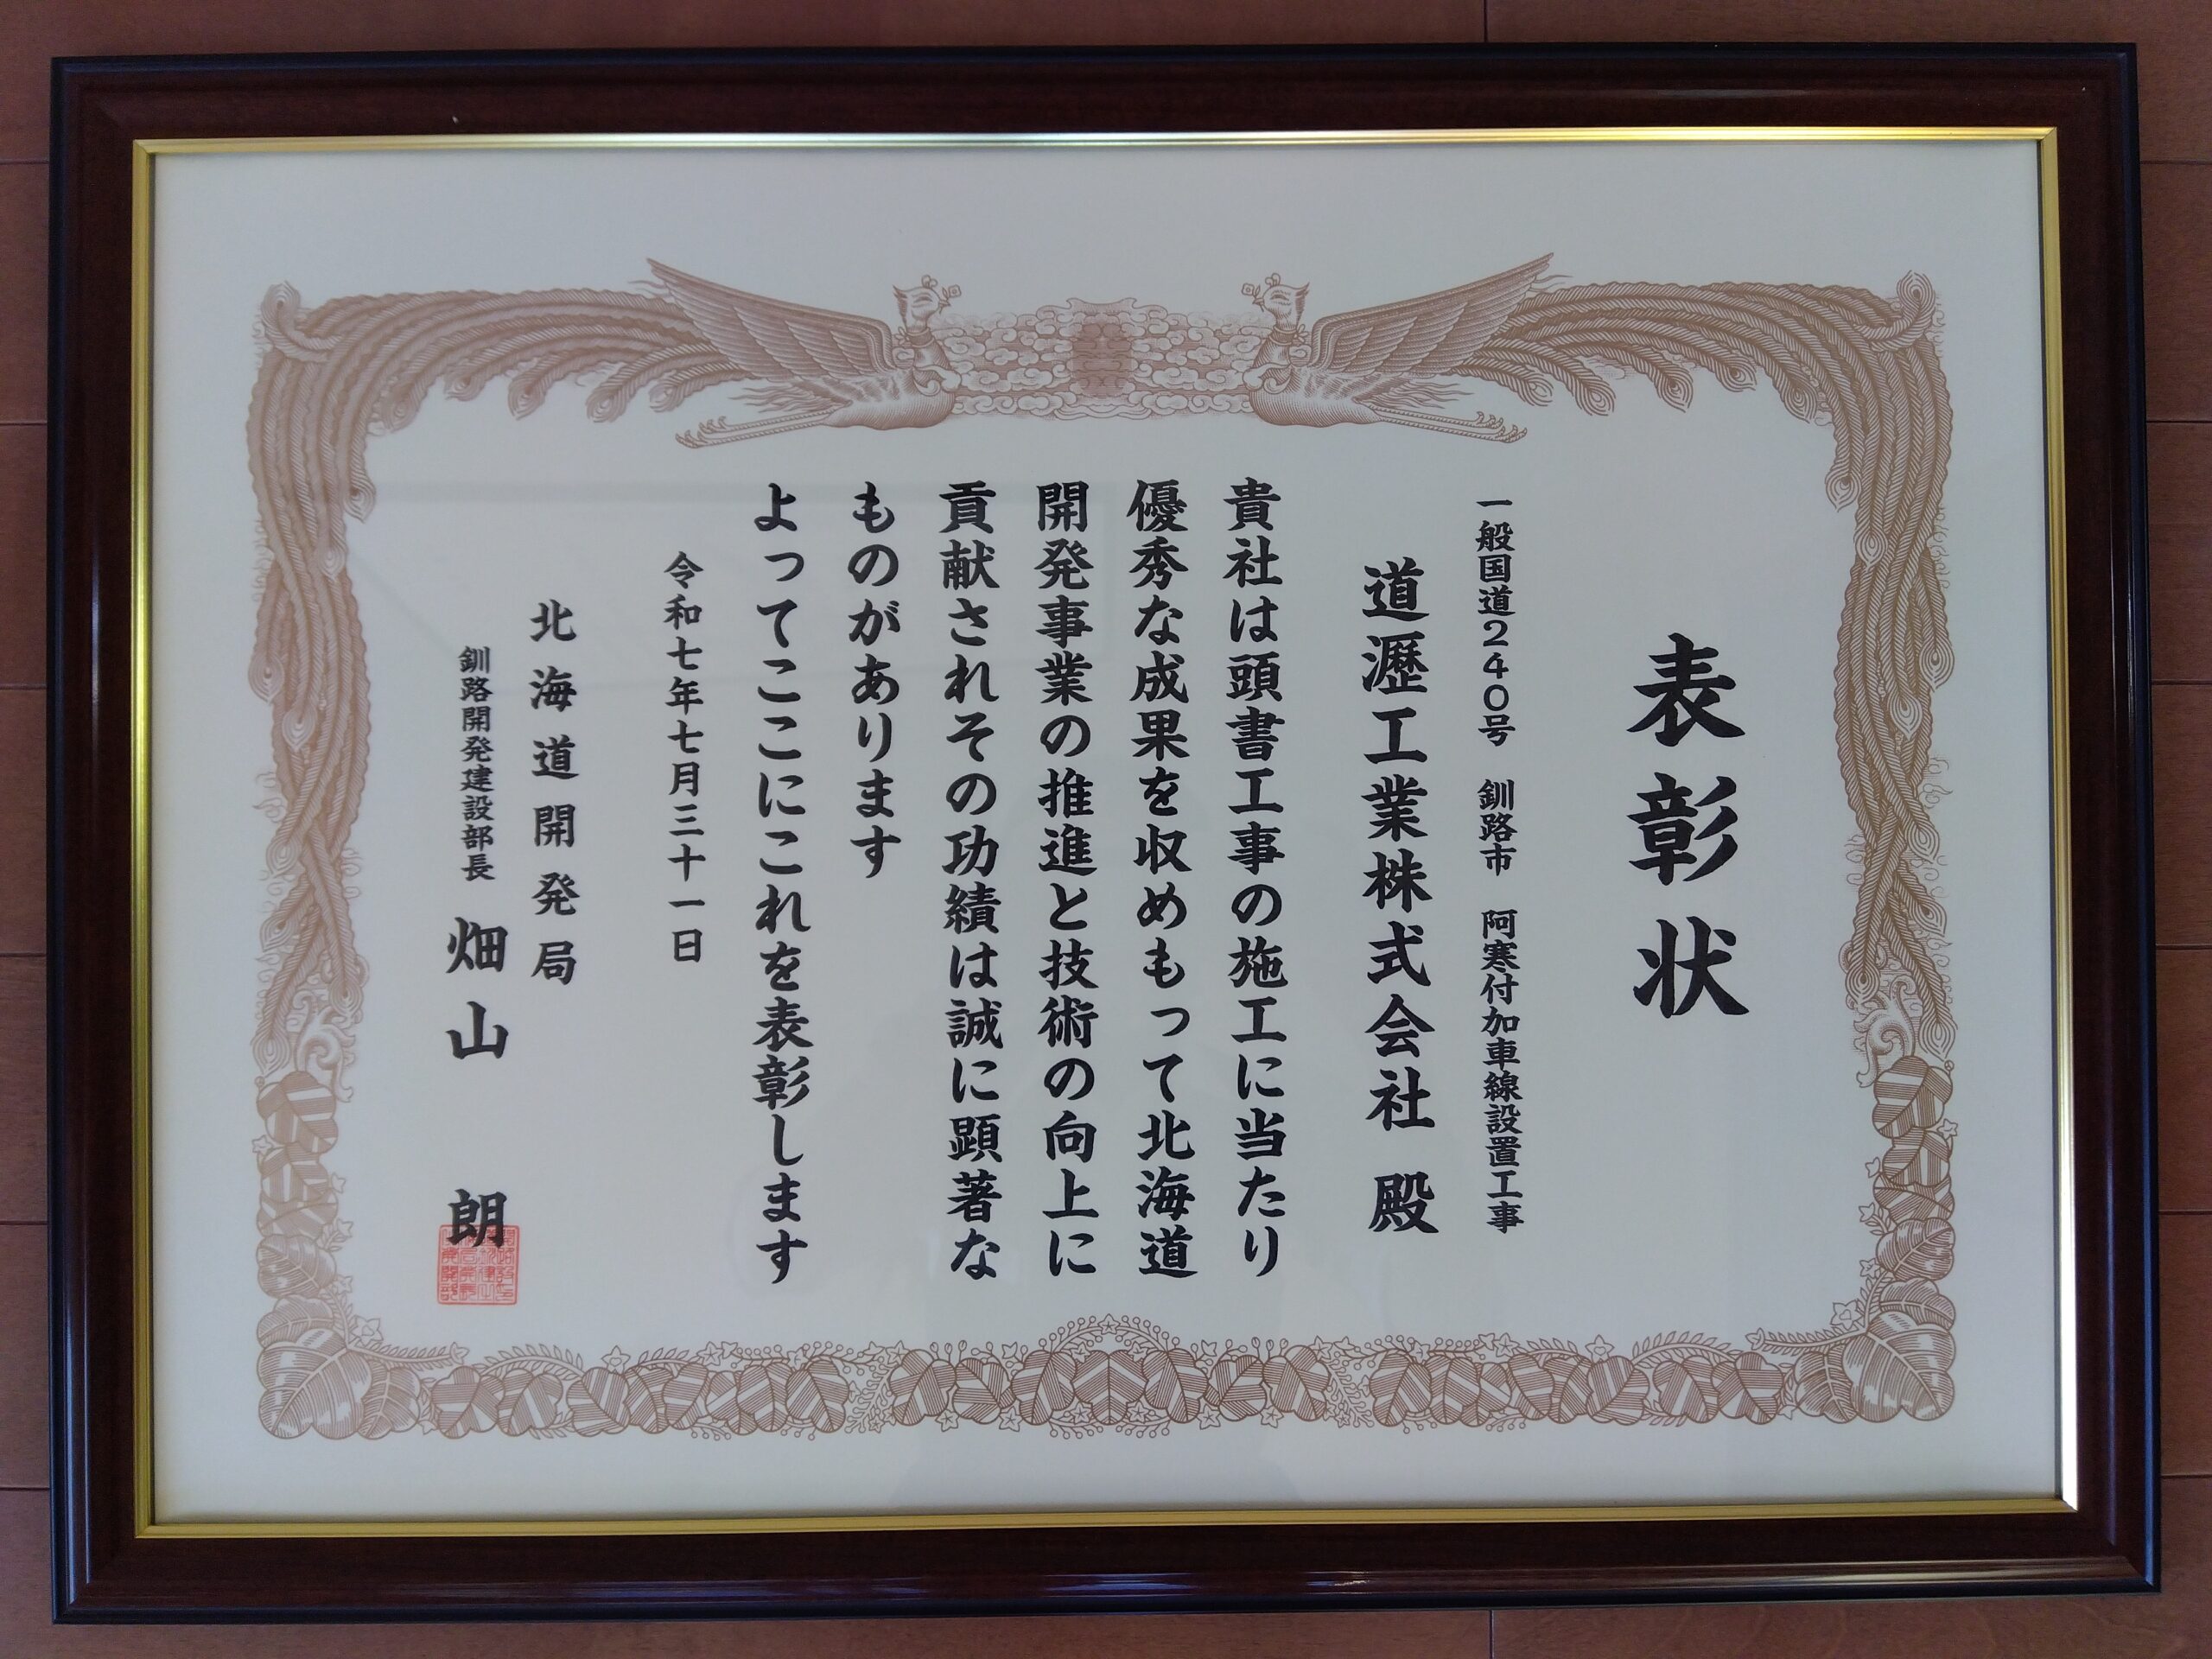 表彰状
一般国道２４０号　釧路市　阿寒付加車線設置工事
道瀝工業株式会社　殿
貴社は頭書工事の施工に当たり
優秀な成果を収めもって北海道
開発事業の推進と技術の向上に
貢献されその功績は誠に顕著な
ものがあります
よってここにこれを表彰します
令和七年七月三十一日
北海道開発局
釧路開発建設部長　畑山　朗